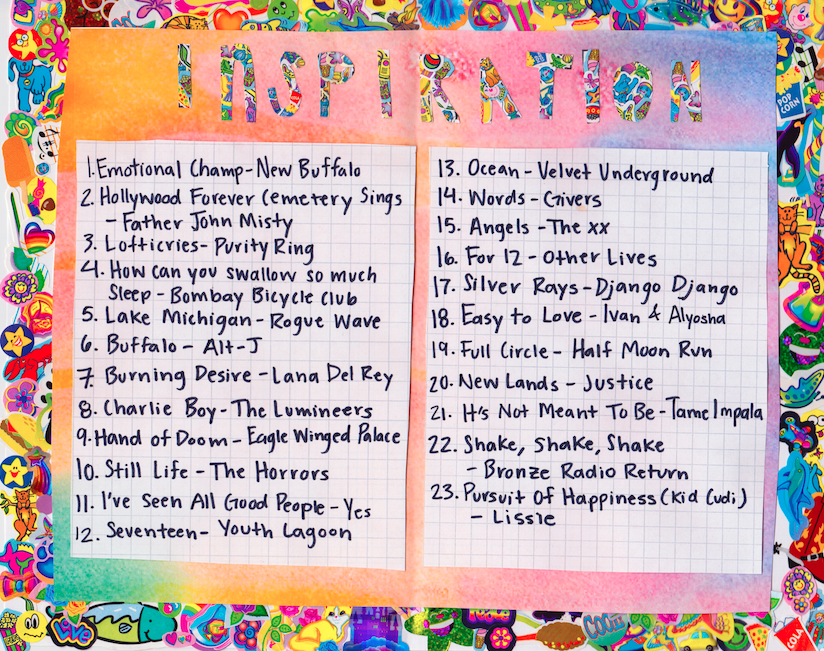 INSPIRATION
1. Emotional Champ - New Buffalo
2. Hollywood Forever Cemetery Sings
- Father John Misty
3. Lofticries - Purity Ring
4. How can you swallow so much
Sleep - Bombay Bicycle Club
5. Lake Michigan - Rogue Wave
6. Buffalo - Alt-J
7. Burning Desire - Lana Del Rey
8. Charlie Boy - The Lumineers
9. Hand of Doom - Eagle Winged Palace
10. Still Life - The Horrors
11. I've Seen All Good People - Yes
12. Seventeen - Youth Lagoon
13. Ocean - Velvet Underground
14. Words - Givers
15. Angels - The xx
16. For 12 - Other Lives
17. Silver Rays - Django Django
18. Easy to Love - Ivan & Alyosha
19. Full Circle - Half Moon Run
20. New Lands - Justice
21. It's Not Meant To Be - Tame Impala
22. Shake, Shake, Shake
- Bronze Radio Return
23. Pursuit Of Happiness (Kid Cudi)
- Lissie
POP
CORN
LOVE
COLA